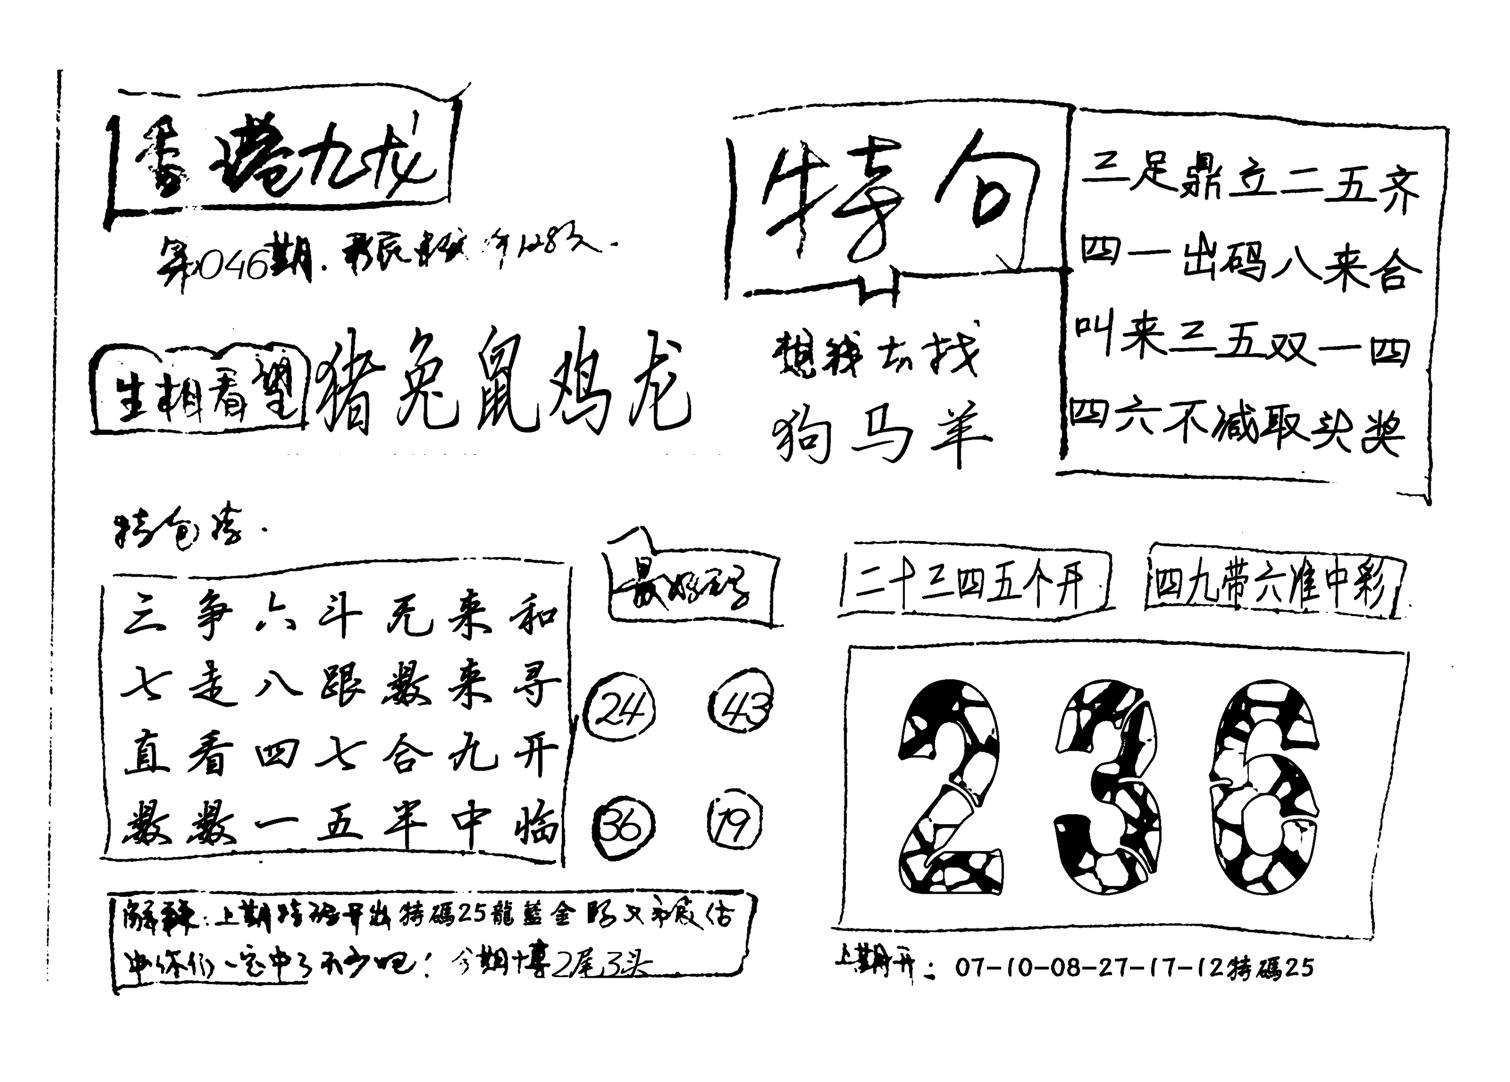 香港九龙
第046期.
生相看望
猪兔鼠鸡龙
特句
想我去找
狗马羊
三足鼎立二五齐
四一出码八来合
叫来三五双一四
四六不减取头奖
三争六斗无来和
七走八跟数来寻
直看四七合九开
数数一五半中临
最好码
24 43
36 19
二十三四五个开
四九带六准中彩
236
解释:上期特码开出特碼25龍藍金
你们一定中了不少吧!今期博2尾3头
上期开:07-10-08-27-17-12特碼25